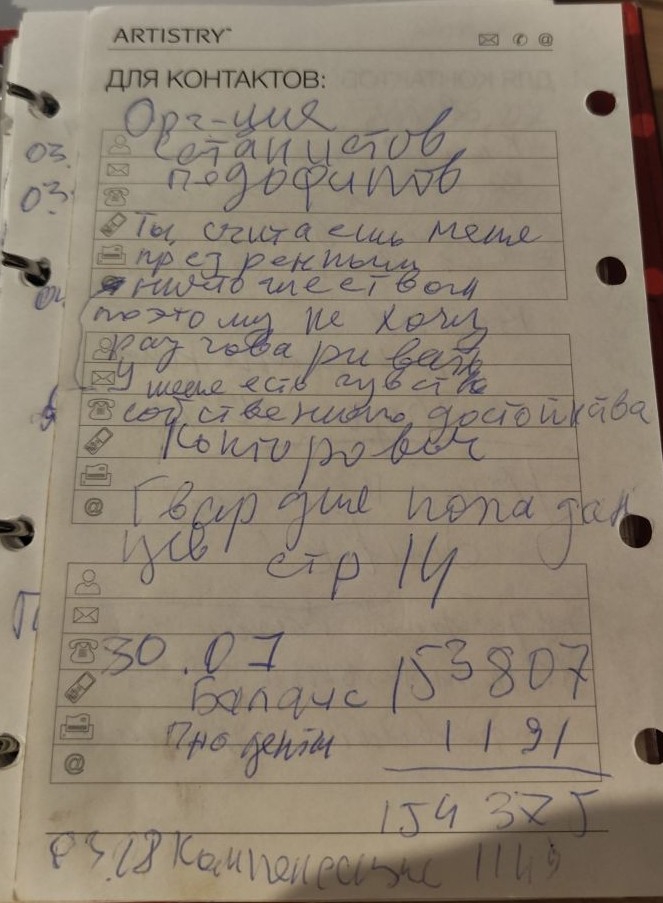 ARTISTRY™
ДЛЯ КОНТАКТОВ:
Орг-ция
сетанистов
педофилов
03.
03.
Ты считаешь меня
презренным
ничтожеством
поэтому не хочу
разговаривать
У меня есть чувство
собственного достоинства
Конторович
Гвардия попадан
цев стр 14
30.07
Баланс 153807
1191
154 375
Компенсация 1149